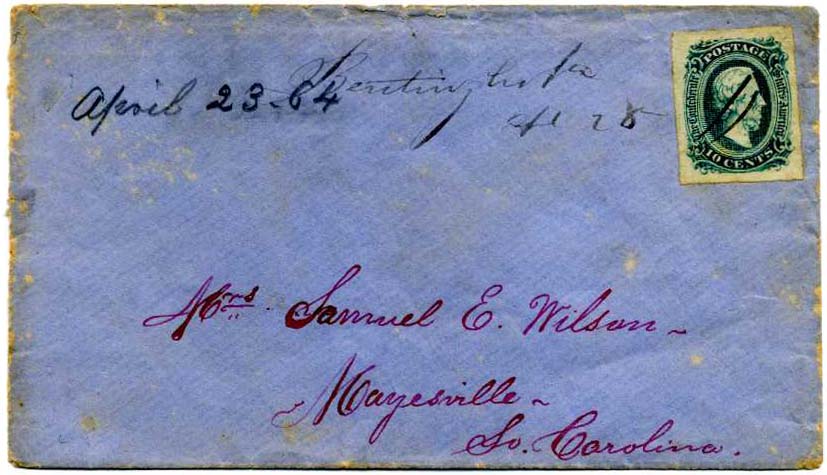 April 23-64
Apl 28
POSTAGE
The Confederate States of America
10 CENTS
Mrs Samuel E. Wilson~
Mayesville~
So. Carolina.